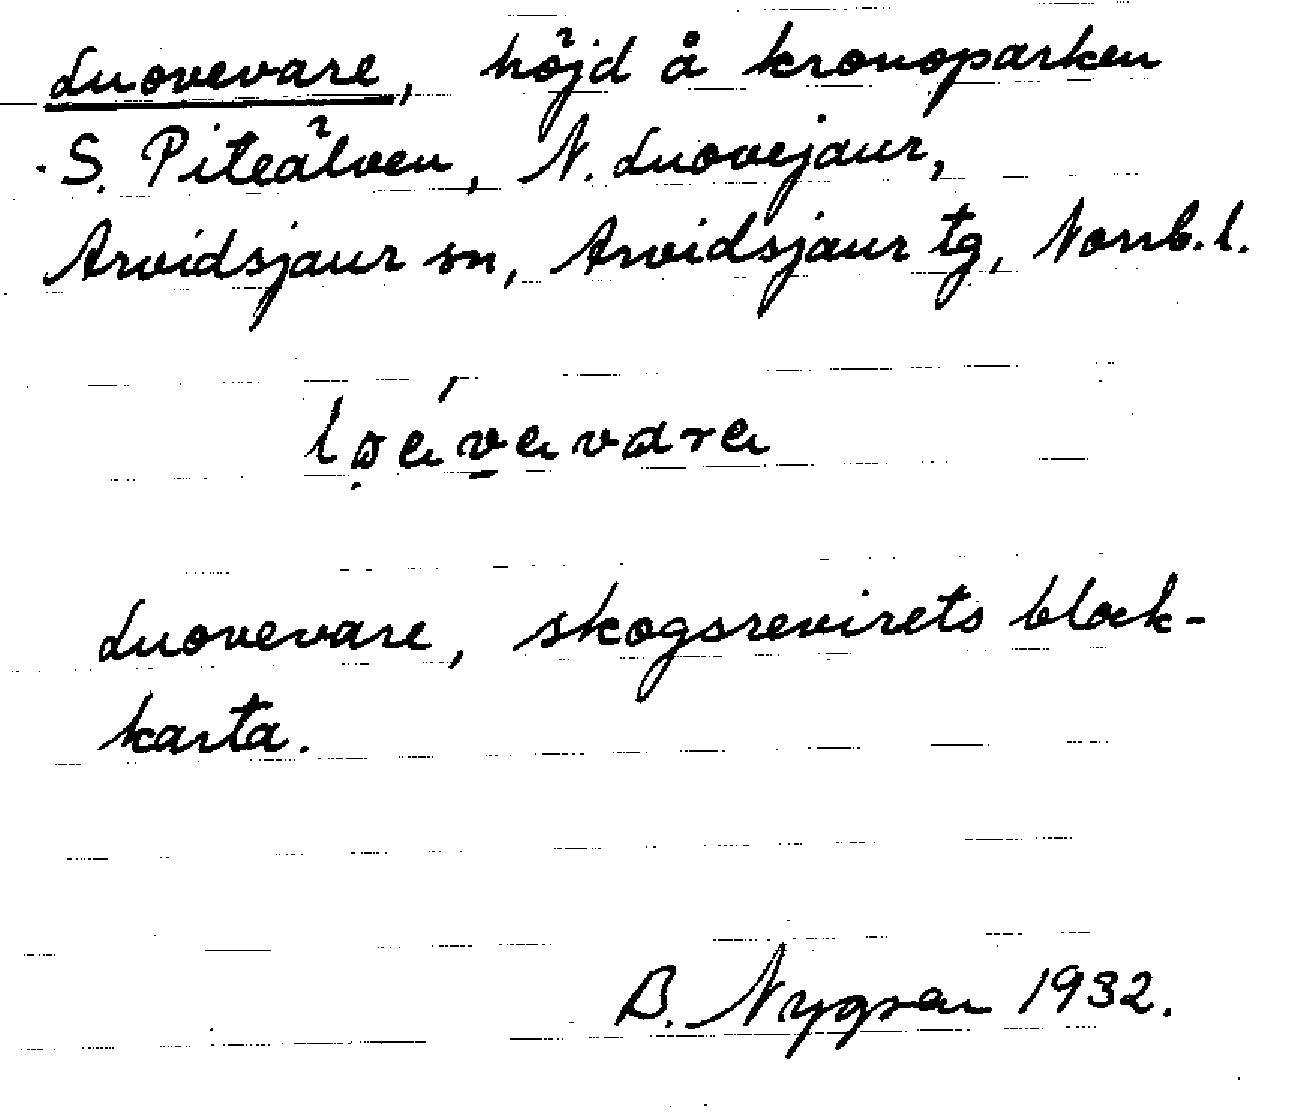 Luovevare, höjd å kronoparken
S. Piteälven, N. Luovejaur,
Arvidsjaur sn, Arvidsjaur tg, Norrb. l.
Luovevare, skogsrevirets block-
karta.
B. Nygren 1932.